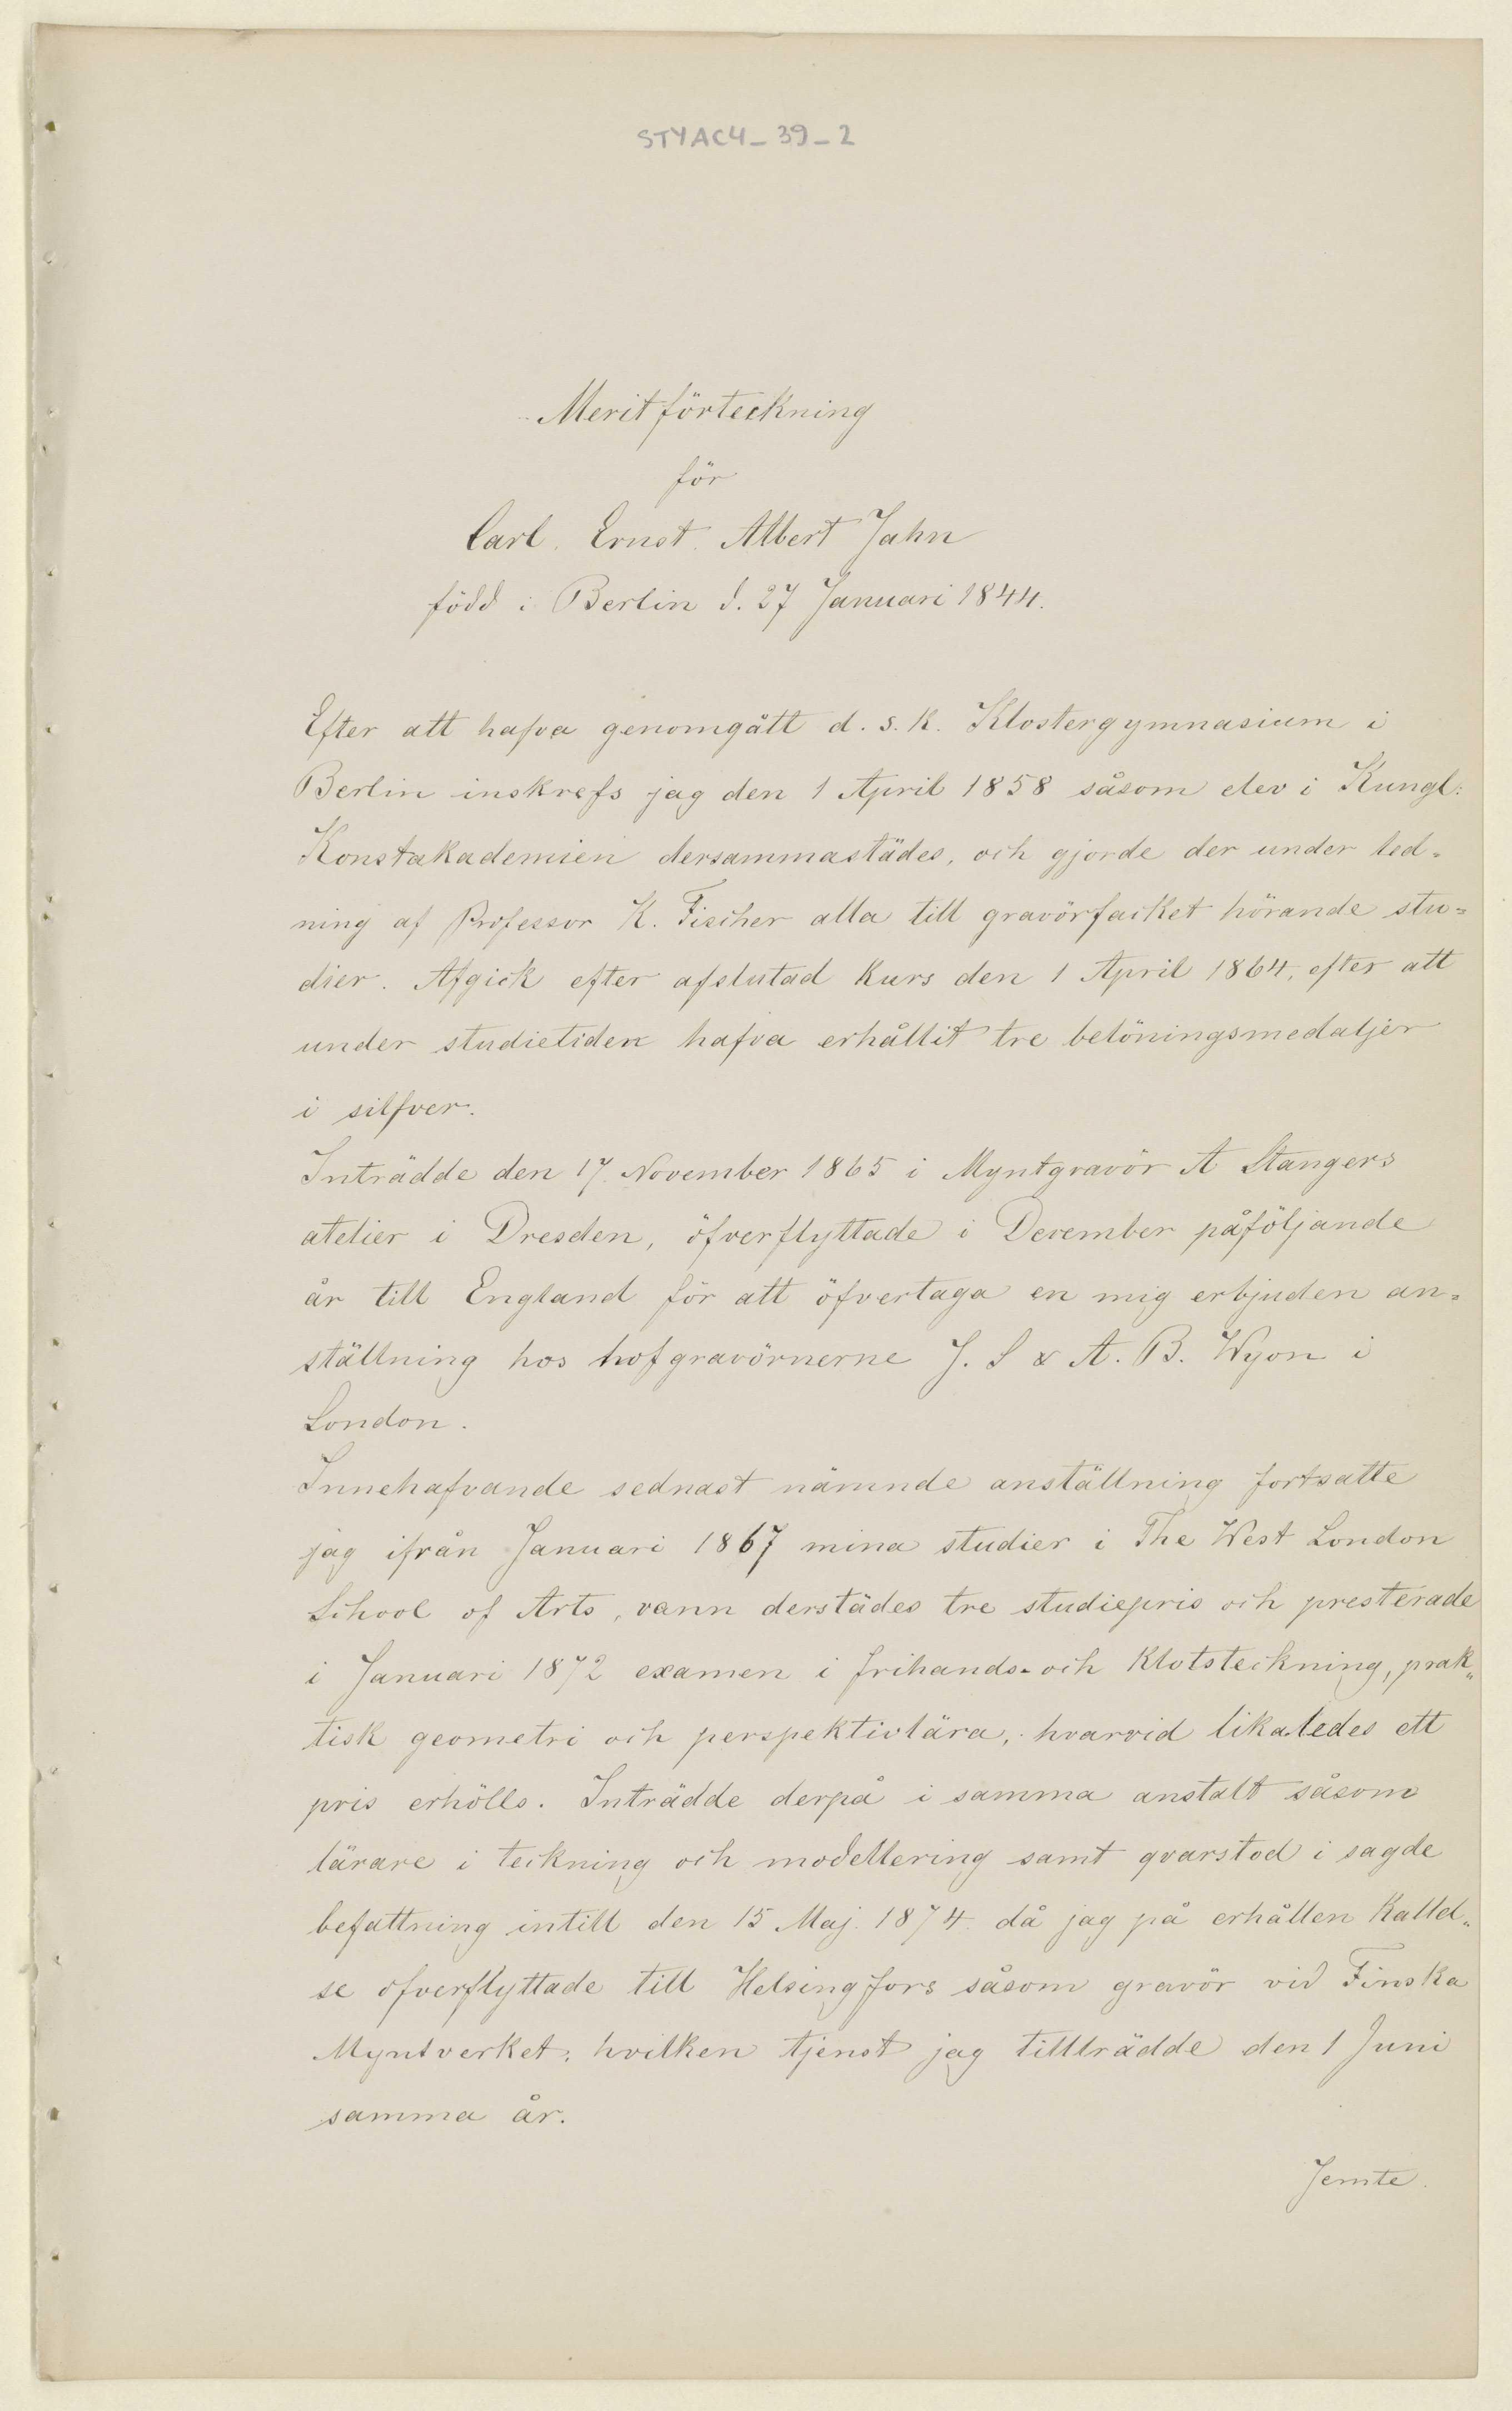 STYAC4_39_2
Meritförteckning
för
Carl. Ernst. Albert Jahn
född i Berlin d. 27 Januari 1844.
Efter att hafva genomgått d. s. k. Klostergymnasium i
Berlin inskrefs jag den 1 April 1858 såsom elev i Kungl:
Konstakademien dersammastädes, och gjorde der under led=
ning af Professor K. Fischer alla till gravörfacket hörande stu=
dier. Afgick efter afslutad kurs den 1 April 1864, efter att
under studietiden hafva erhållit tre belöningsmedaljer
i silfver.
Inträdde den 17. November 1865 i Myntgravör A Stangers
atelier i Dresden, öfverflyttade i December påföljande
år till England för att öfvertaga en mig erbjuden an=
ställning hos hofgravörnerne J. S & A. B. Wyon i
London.
Innehafvande sednast nämnde anställning fortsatte
jag ifrån Januari 1867 mina studier i The West London
School of Arts, vann derstädes tre studiepris och presterade
i Januari 1872 examen i frihands- och Klotsteckning, prak„
tisk geometri och perspektivlära, hvarvid likaledes ett
pris erhölls. Inträdde derpå i samma anstalt såsom
lärare i teckning och modellering samt qvarstod i sagde
befattning intill den 15 Maj. 1874. då jag på erhållen Kallel„
se öfverflyttade till Helsingfors såsom gravör vid Finska
Myntverket, hvilken tjenst jag tillträdde den 1 Juni
samma år.
Jemte.